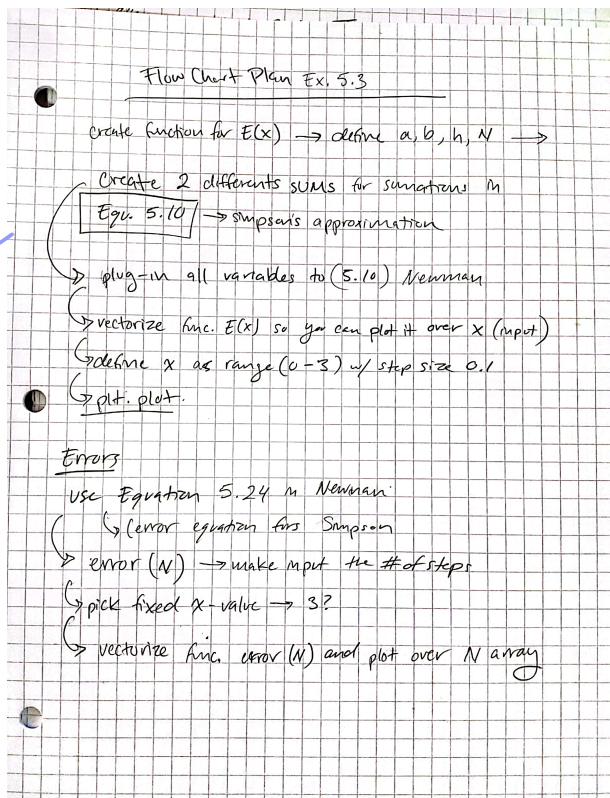 Flow Chart Plan Ex. 5.3
create function for E(x) → define a, b, h, N →
Create 2 differents sums for sumations in
Equ. 5.10 → simpson's approximation
→ plug-in all variables to (5.10) Newman
→ vectorize func. E(x) so you can plot it over x (input)
→ define x as range (0-3) w/ step size 0.1
→ plt. plot.
Errors
use Equation 5.24 in Newman
→ (error equation for Simpson
→ error (N) → make input the # of steps
→ pick fixed x-value → 3?
→ vectorize func. error (N) and plot over N array